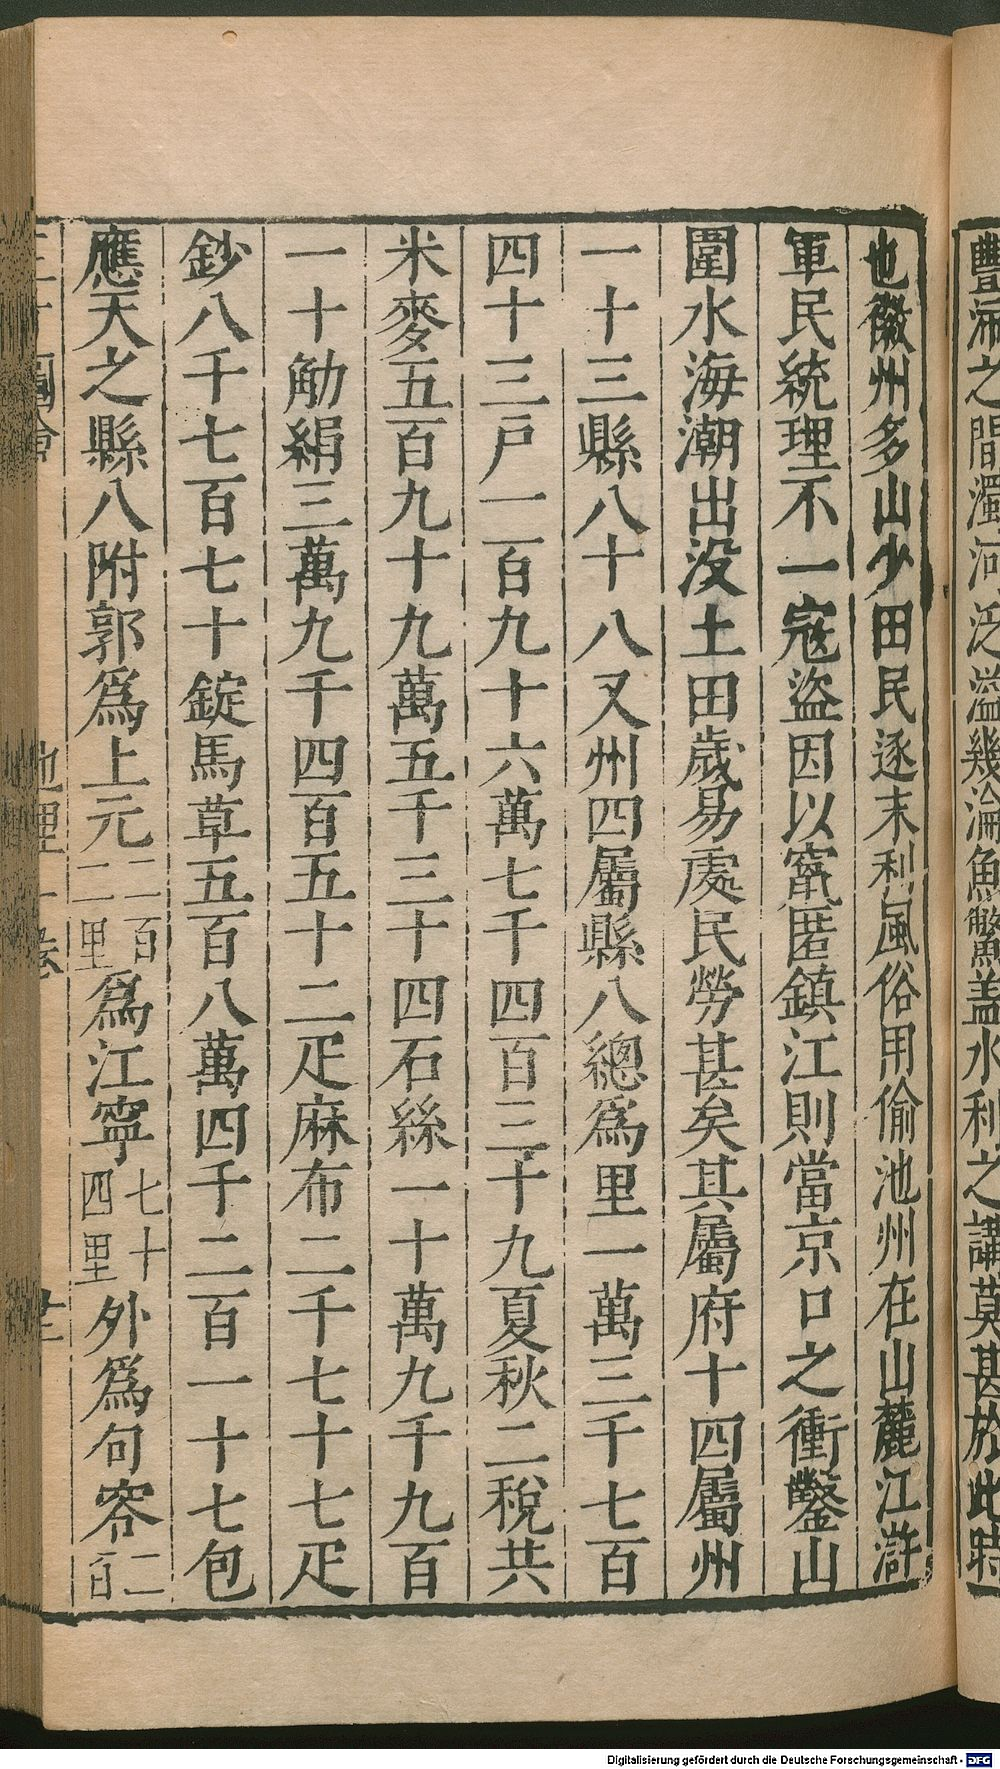 豐沛之間濁河泛溢幾淪魚鱉盖水利之講莫甚於此時
也徽州多山少田民逐末利風俗用偷池州在山麓江滸
軍民統理不一寇盜因以竄匿鎮江則當京口之衝鑿山
圍水海潮出没土田歲易處民勞甚矣其屬府十四屬州
一十三縣八十八又州四屬縣八總爲里一萬三千七百
四十三戶一百九十六萬七千四百三十九夏秋二稅共
米麥五百九十九萬五千三十四石絲一十萬九千九百
一十觔絹三萬九千四百五十二疋麻布二千七十七疋
鈔八千七百七十錠馬草五百八萬四千二百一十七包
應天之縣八附郭爲上元二百二里爲江寧七十四里外爲句容二百
三才圖會 地理一卷 廿三
Digitalisierung gefördert durch die Deutsche Forschungsgemeinschaft - DFG